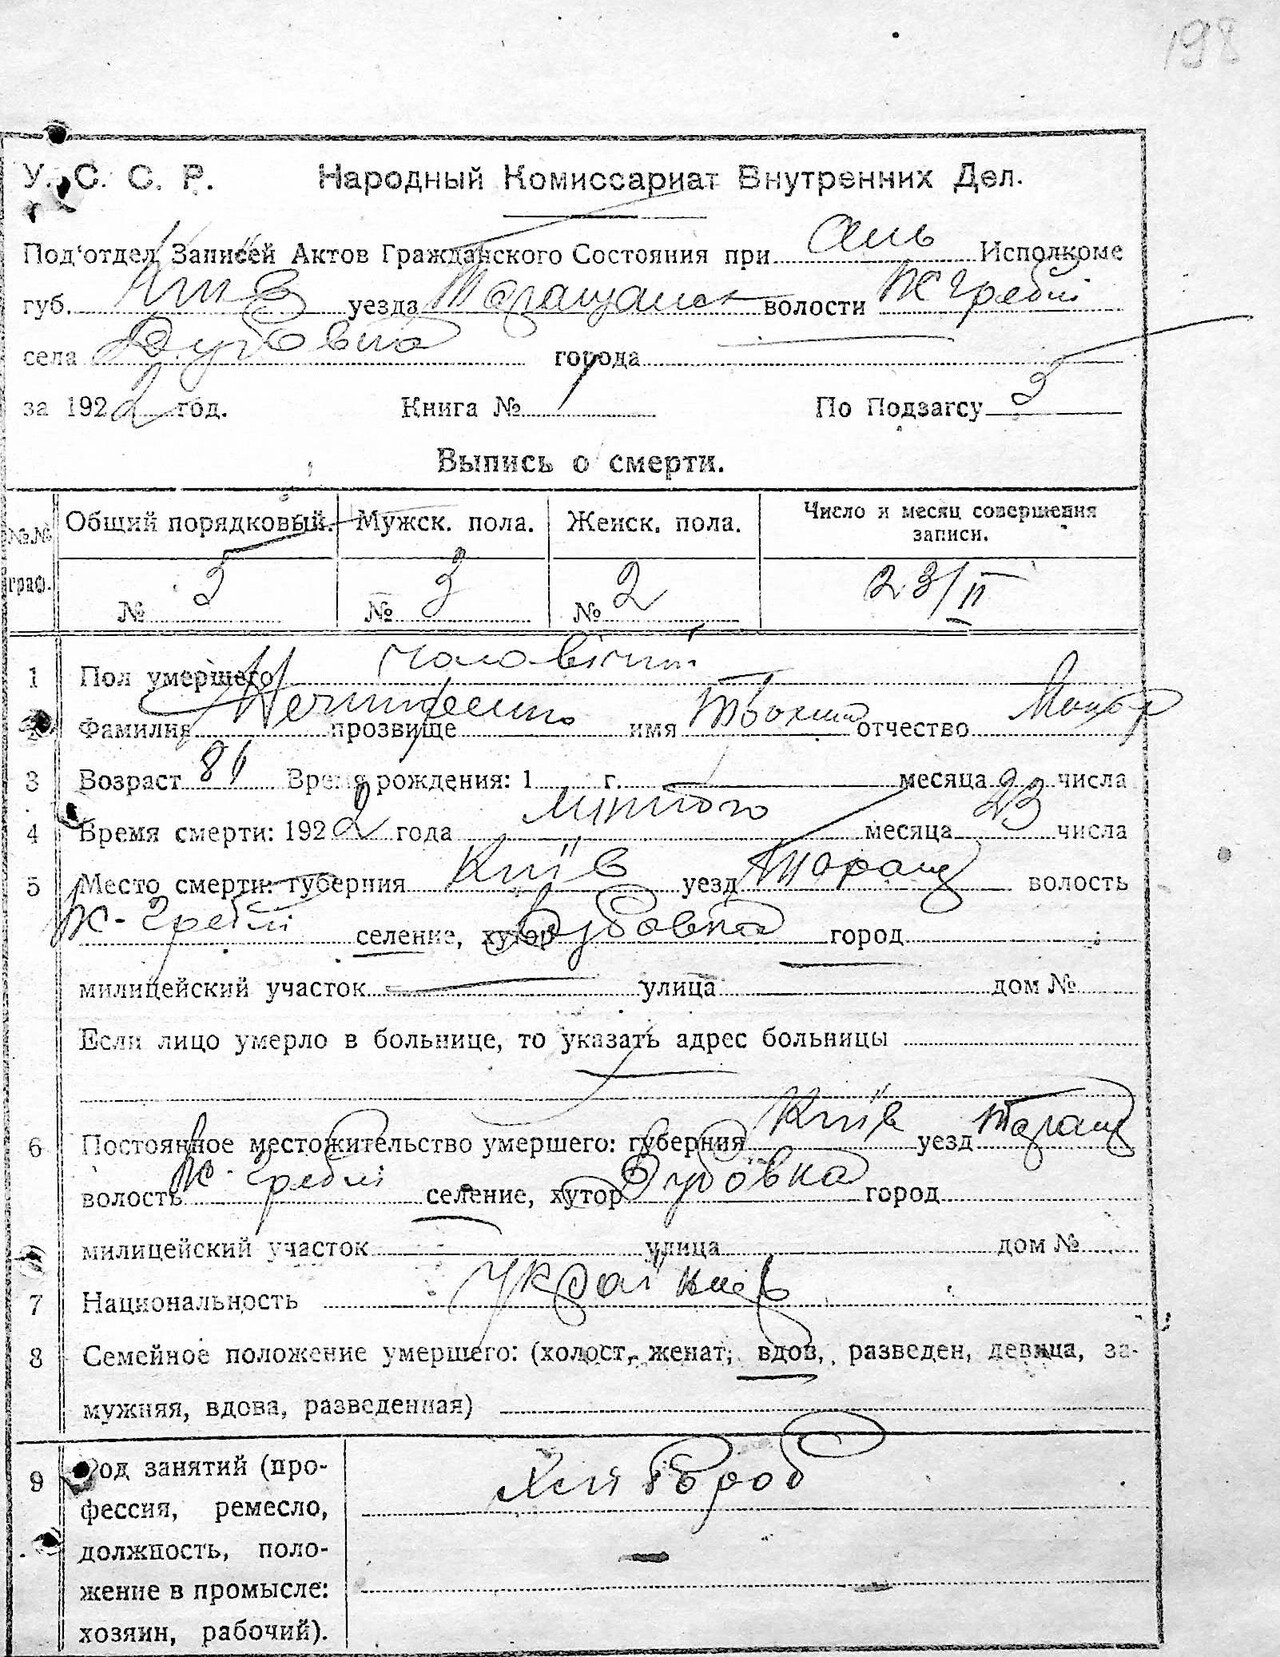 198
У. С. С. Р. Народный Комиссариат Внутренних Дел.
Под'отдел Записей Актов Гражданского Состояния при Исполкоме
губ. Київ уезда Таращанск волости Ж Гребл
села Дубовка города
за 1922 год. Книга № 1 По Подзагсу 5
Выпись о смерти.
№№ граф. Общий порядковый. Мужск. пола. Женск. пола. Число и месяц совершения записи.
№ 5 № 3 № 2 23/II
1 Пол умершего чоловічий
2 Фамилия прозвище имя отчество
3 Возраст Время рождения: 1 г. месяца числа
4 Время смерти: 1922 года лютого месяца 23 числа
5 Место смерти: губерния Київ уезд Таращ волость
Ж-Греблі селение, хутор Дубовка город
милицейский участок улица дом №
Если лицо умерло в больнице, то указать адрес больницы
6 Постоянное местожительство умершего: губерния Київ уезд Таращ
волость Ж-Греблі селение, хутор Дубовка город
милицейский участок улица дом №
7 Национальность Українець
8 Семейное положение умершего: (холост, женат, вдов, разведен, девица, за-
мужняя, вдова, разведенная)
9 Род занятий (про- Хлібороб
фессия, ремесло,
должность, поло-
жение в промысле:
хозяин, рабочий).